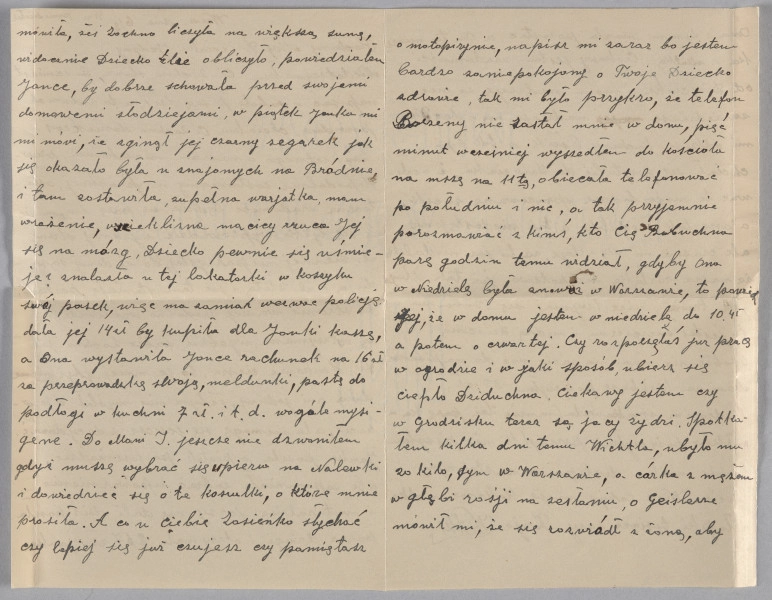 mówiła, żeś Zochno liczyła na większą sumę,
widocznie Dziecko źle obliczyło, powiedziałem
Jance, by dobrze schowała przed swojemi
domowemi złodziejami, w piątek Janka mi
mi mówi, że zginął jej czarny zegarek jak
się okazało była u znajomych na Bródnie,
i tam zostawiła, zupełna warjatka, mam
wrażenie, że macicy rzuca Jej
się na mózg, Dziecko pewnie się uśmie-
je: znalazła u tej lokatorki w koszyku
swój pasek, więc ma zamiar wezwać policję,
dała jej 14 zł by kupiła dla Janki kaszę,
a Ona wystawiła Jance rachunek na 16 zł
za przeprowadzkę swoją, meldunki, pastę do
podłogi w kuchni 7 zł. i t. d. wogóle
Do Mani J. jeszcze nie dzwoniłem
gdyż muszę wybrać się wpierw na Nalewki
i dowiedzieć się o te koszulki, o które mnie
prosiła. A co u Ciebie Zosieńko słychać
czy lepiej się już czujesz czy pamiętasz
o motopirynie, napisz mi zaraz bo jestem
bardzo zaniepokojony o Twoje Dziecko
zdrowie, tak mi było przykro, że telefon
Bożeny nie zastał mnie w domu, pięć
minut wcześniej wyszedłem do kościoła
na mszę na 11tą, obiecała telefonować
po południu i nic, a tak przyjemnie
porozmawiać z kimś, kto Cię Bobuchna
parę godzin temu widział, gdyby Ona
w Niedzielę była znowu w Warszawie, to powiedz
jej, że w domu jestem w niedzielę do 10,45
a potem o czwartej. Czy rozpoczęłaś już pracę
w ogrodzie i w jaki sposób, ubieraj się
ciepło Dziduchna. Ciekawy jestem czy
w Grodzisku teraz są jacy żydzi. Spotka-
łem kilka dni temu Wichtla, ubyło mu
20 kilo, syn w Warszawie, a córka z mężem
w głębi rosji na zesłaniu, o Geislerze
mówił mi, że się rozwiódł z żoną, aby